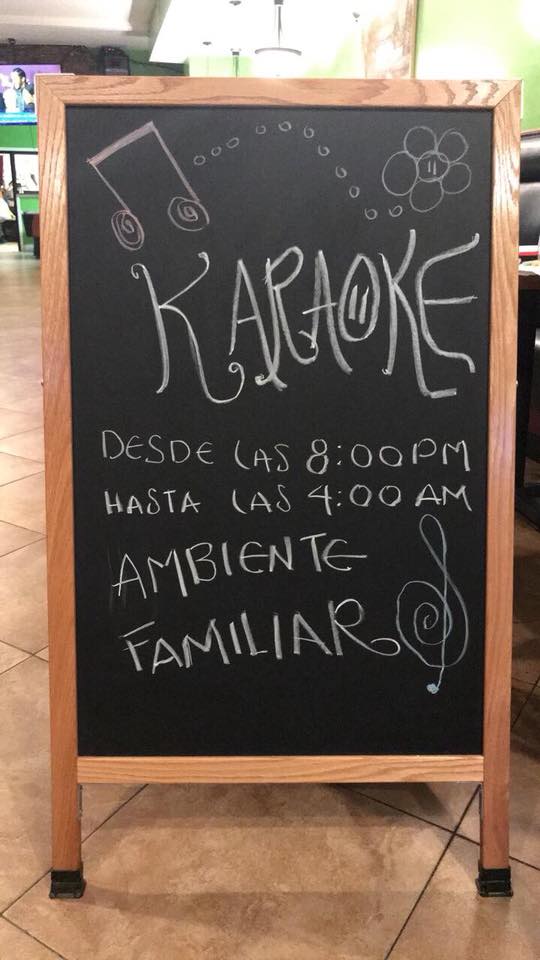 KARAOKE
DESDE LAS 8:00 PM
HASTA LAS 4:00 AM
AMBIENTE
FAMILIAR